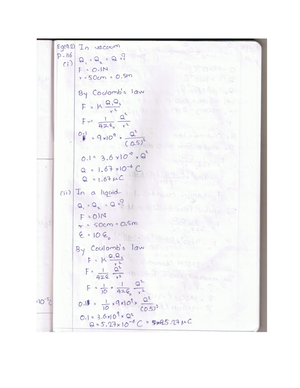 (i) In vacuum
Q₁ = Q₂ = Q = ?
F = 0.1N
r = 50cm = 0.5m
By Coulomb's law
F = K Q₁Q₂/r²
F = 1/4πε₀ Q²/r²
0.1 = 9×10⁹ × Q²/(0.5)²
0.1 = 3.6×10¹⁰ × Q²
Q = 1.67×10⁻⁶ C
Q = 1.67 μC
(ii) In a liquid
Q₁ = Q₂ = Q = ?
F = 0.1N
r = 50cm = 0.5m
ε = 10 ε₀
By Coulomb's law
F = K Q₁Q₂/r²
F = 1/4πε Q²/r²
F = 1/10 × 1/4πε₀ Q²/r²
0.1 = 1/10 × 9×10⁹ × Q²/(0.5)²
0.1 = 3.6×10⁹ × Q²
Q = 5.27×10⁻⁶ C = 5.27 μC